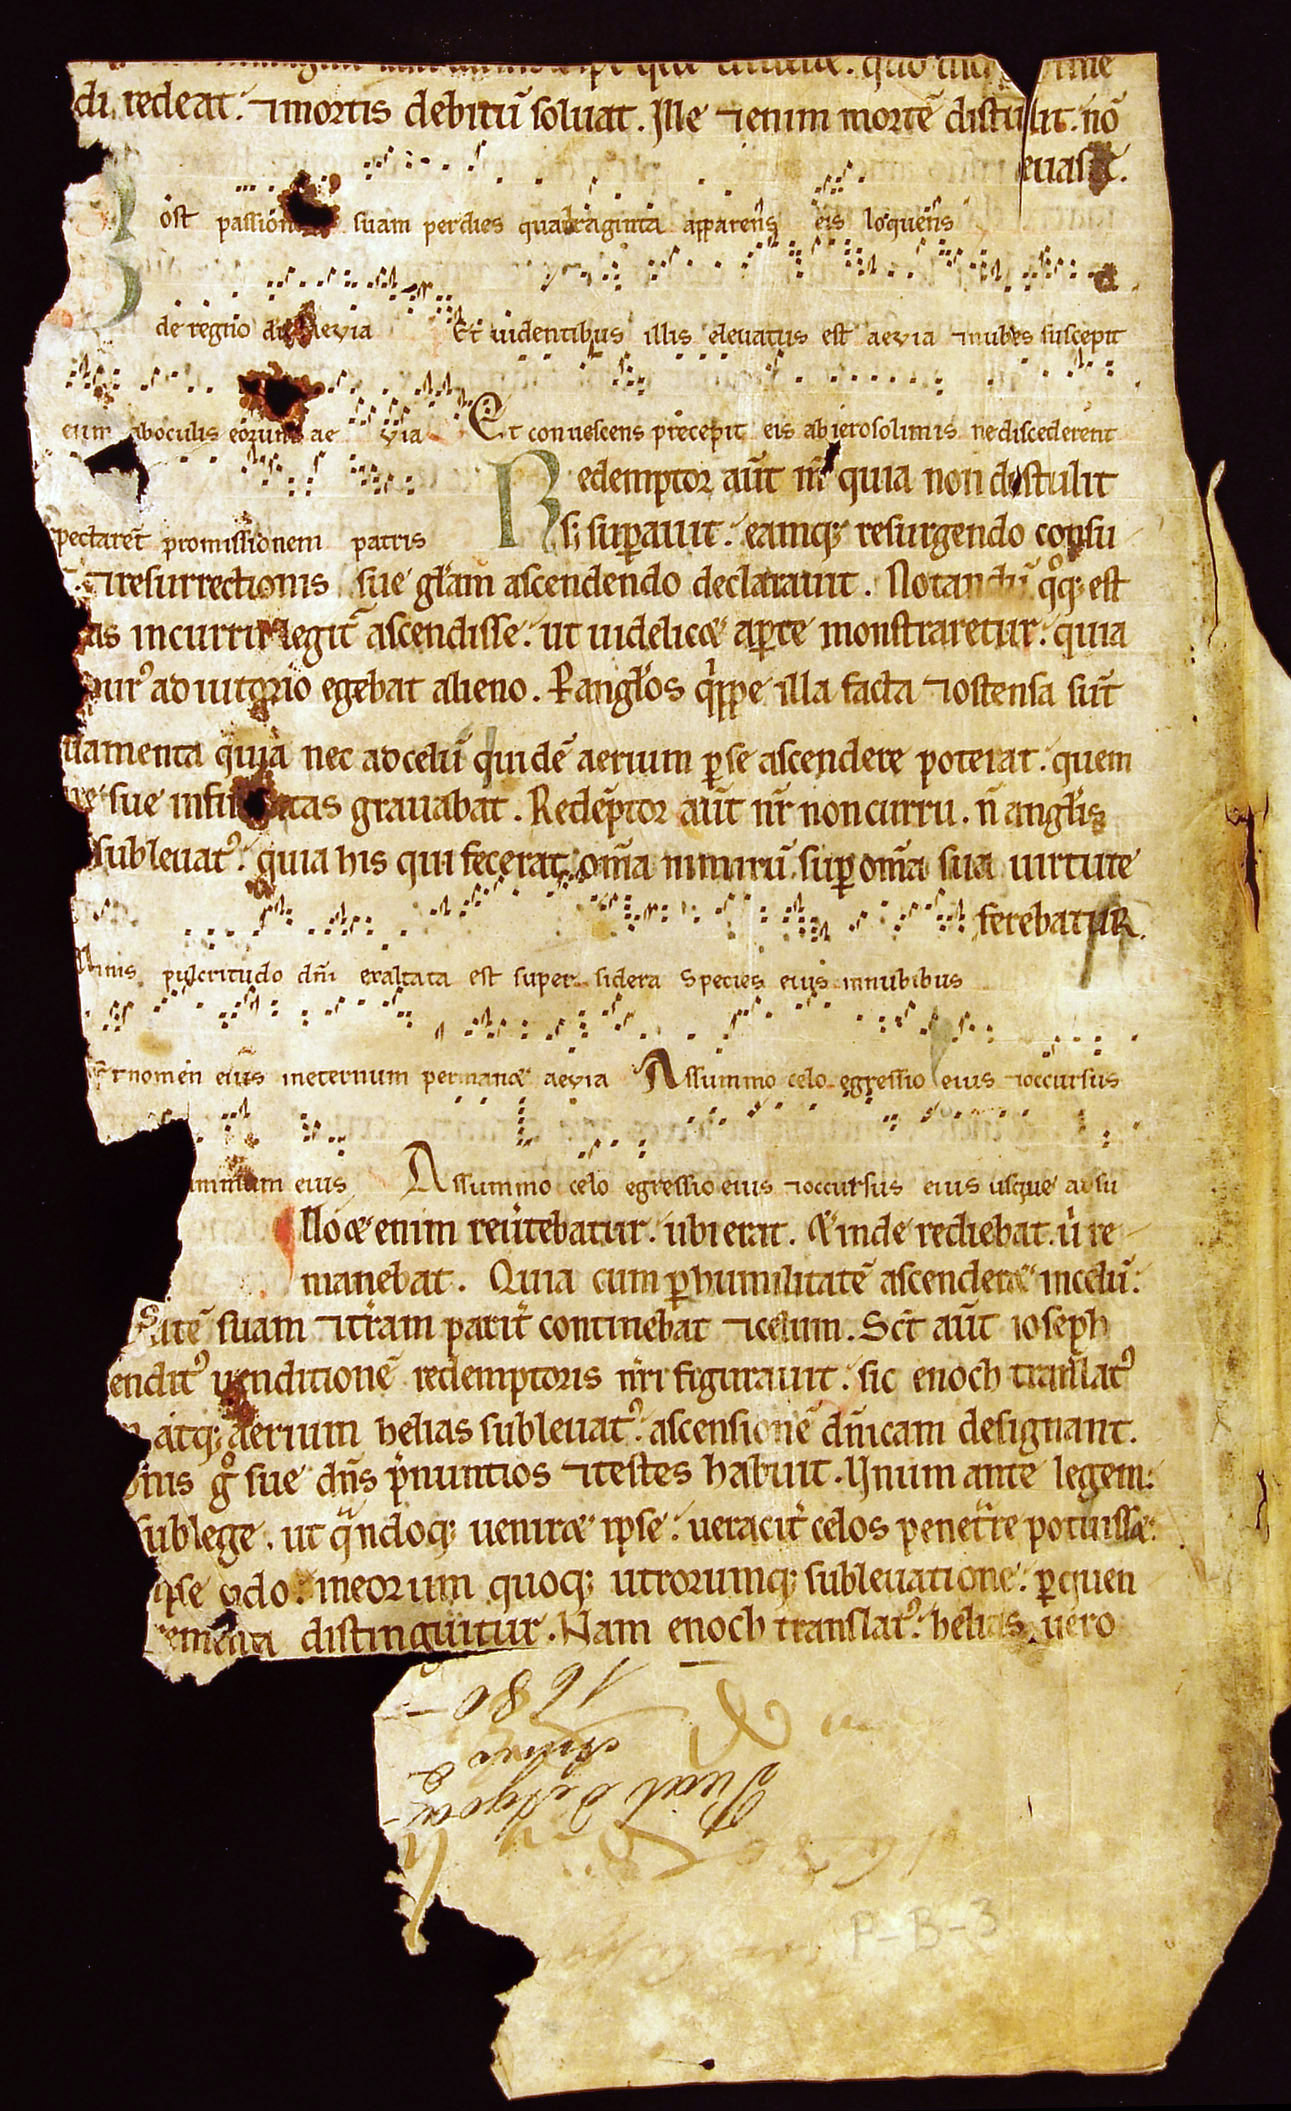 di redeat. ⁊ mortis debitū soluat. Ille ⁊enim mortē distulit. nō
euasit.
ost passionem suam per dies quadraginta apparens eis loquens
de regno dei aeuia Et uidentibus illis eleuatus est aeuia ⁊nubes suscepit
eum aboculis eorum aeuia Et conuescens precepit eis abierosolimis nediscederent
Redemptor aūt nr̄ quia non distulit
pectarēt promissionem patris s; sup̄auit. eamq; resurgendo consu
⁊resurrectionis sue gl̄am ascendendo declarauit. Notandū q̊q; est
as incurru legit᷑ ascendisse. ut uidelicet ap̄te monstraretur. quia
pur⁹ adiutorio egebat alieno. P angl̄os q̄ppe illa facta ⁊ostensa sūt
damenta quia nec adcelū quidē aerium p̄se ascendere poterat. quem
re sue infirmitas grauabat. Redēptor aūt nr̄ noncurru. n̄ angl̄is
subleuat⁹. quia his qui fecerat om̄a nimirū sup om̄a sua uirtute
ferebatur.
nimis pulcritudo dn̄i exaltata est super sidera species eius innubibus
⁊nomen eius ineternum permanet aeuia Assummo celo egressio eius ⁊occursus
ummum eius Assummo celo egressio eius ⁊occursus eius usque adsu
Illo ⁊enim reu̓tebatur. ubi erat. & inde rediebat. u̓ re
manebat. Quia cum p̄humilitatē ascenderet incelū.
itatē suam ⁊tr̄am parit̓ continebat ⁊celum. Sic̄ aūt ioseph
endit⁹ uenditionē redemptoris nr̄i figurauit. sic enoch translat⁹
atq; aerium helias subleuat⁹. ascensionē dn̄icam designant.
onis g̊ sue dn̄s p̄nuntios ⁊testes habuit. Unum ante legem.
sublege. ut q̄ndoq; ueniret ipse. ueracit̓ celos penet̄re potuisset.
ipse ordo. ineorum quoq; utrorumq; subleuatione. p̄quen
rementa distinguitur. Nam enoch translat⁹. helias uero
1680
P-B-3